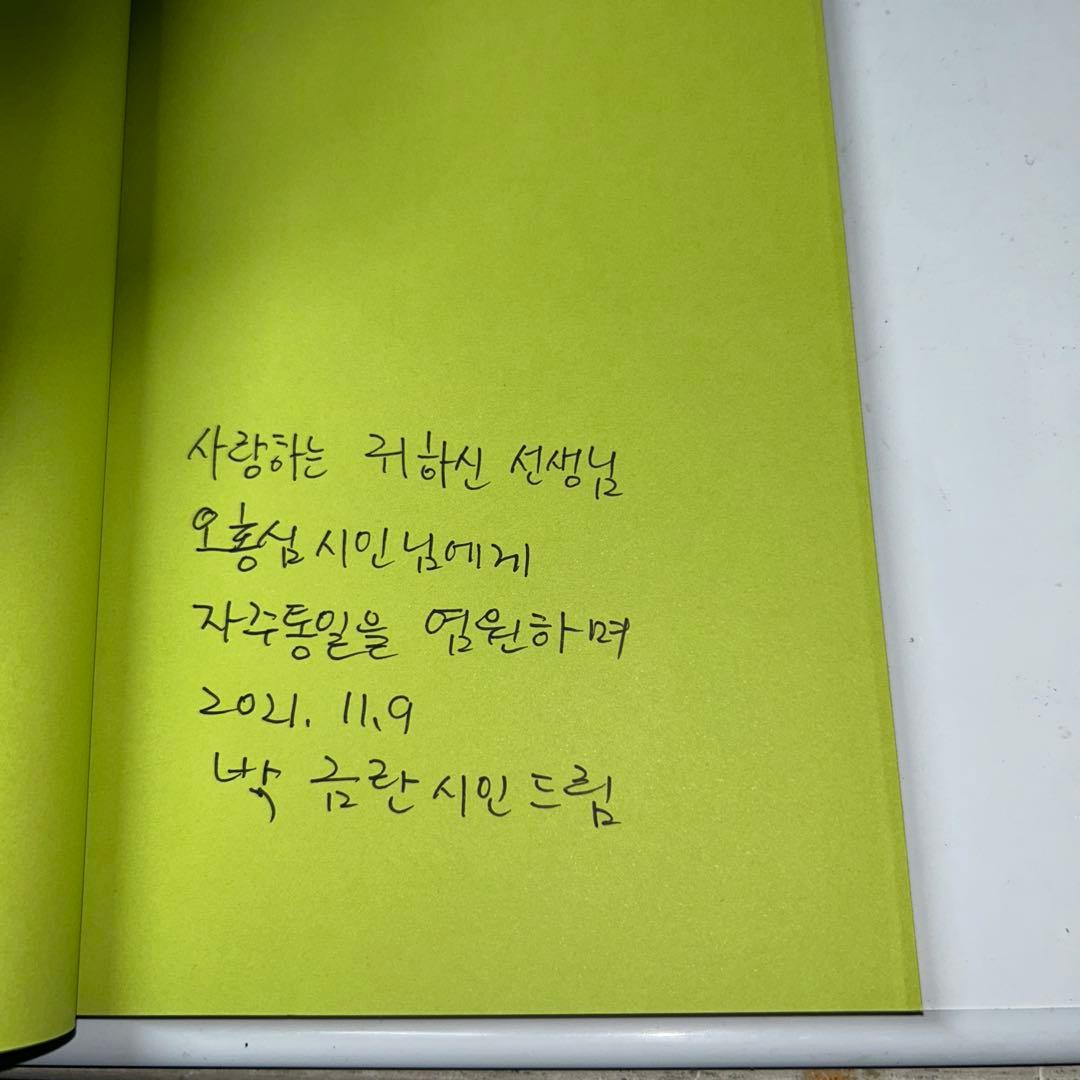 사랑하는 귀하신 선생님
오홍심 시인님에게
자주통일을 염원하며
2021. 11.9
박금란 시인 드림